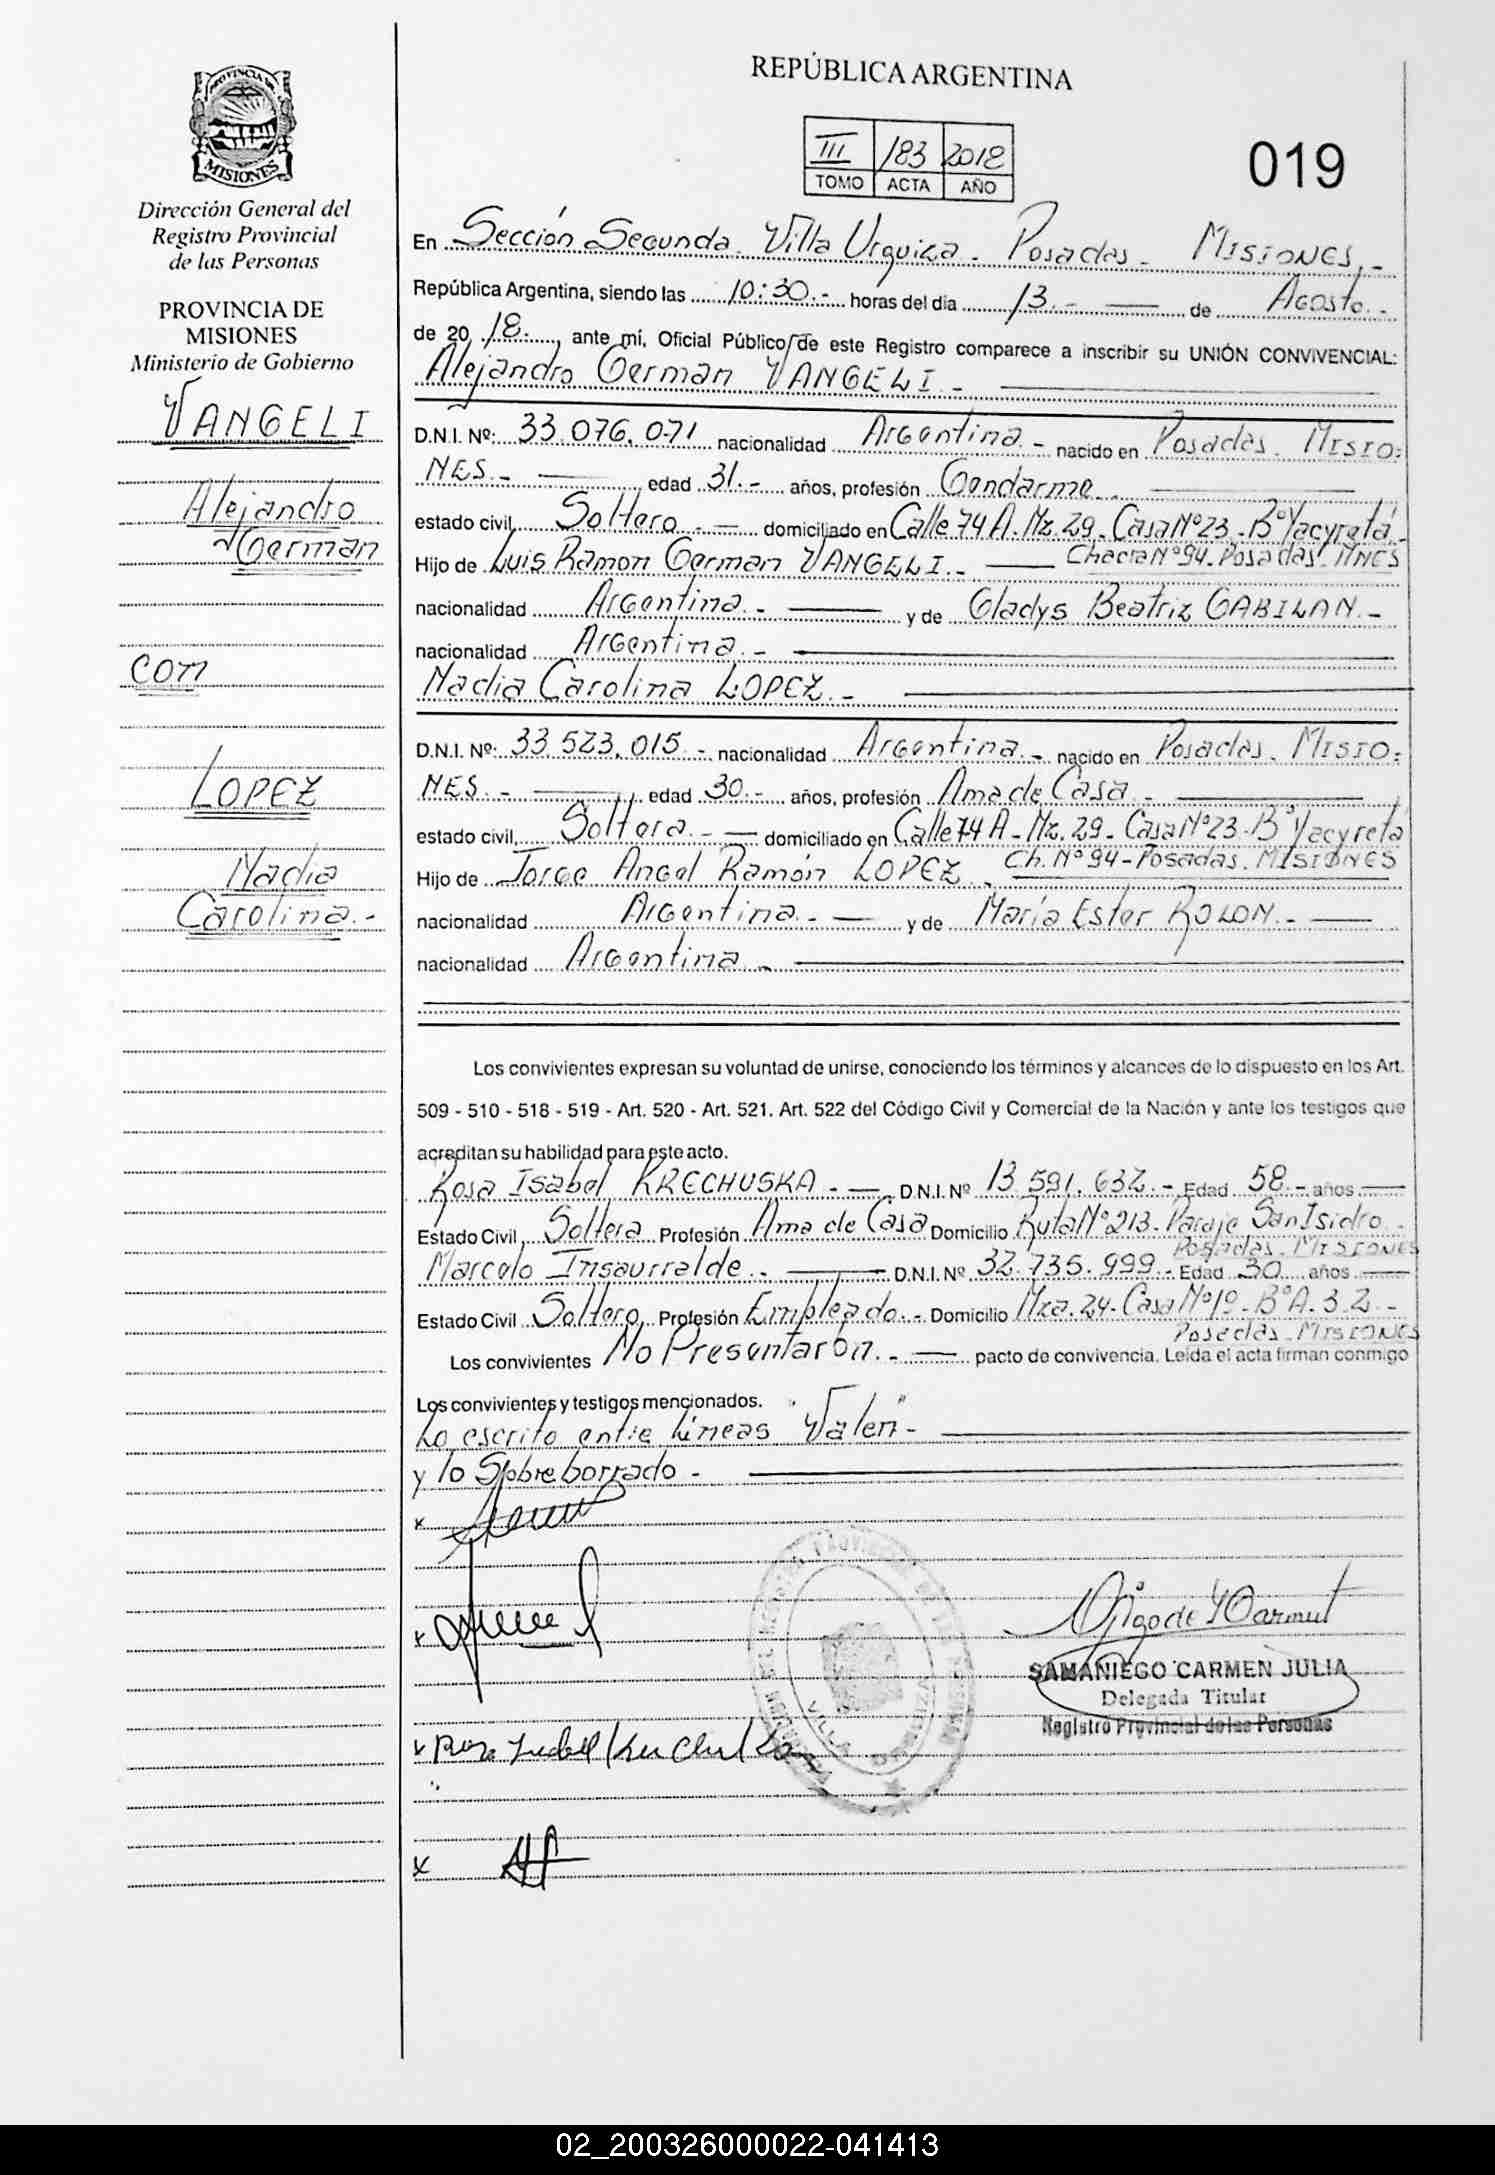 PROVINCIA DE
MISIONES
Dirección General del
Registro Provincial
de las Personas
PROVINCIA DE
MISIONES
Ministerio de Gobierno
VANGELI
Alejandro
German
con
LOPEZ
Nadia
Carolina.-
REPÚBLICA ARGENTINA
III 183 2018
TOMO ACTA AÑO
019
En Sección Segunda. Villa Urquiza. Posadas. MISIONES.-
República Argentina, siendo las 10:30.- horas del día 13.- de Agosto.-
de 20 18., ante mí, Oficial Público de este Registro comparece a inscribir su UNIÓN CONVIVENCIAL:
Alejandro German VANGELI.-
D.N.I. Nº: 33.076.071 nacionalidad Argentina.- nacido en Posadas. MISIO=
NES.- edad 31.- años, profesión Gendarme.
estado civil, Soltero.- domiciliado en Calle 74 A. Mz. 29. Casa Nº 23.- Bº Yacyretá.-
Chacra Nº 94. Posadas. MNES
Hijo de Luis Ramon German VANGELI.-
nacionalidad Argentina.- y de Gladys Beatriz GABILAN.-
nacionalidad Argentina.-
Nadia Carolina LOPEZ.-
D.N.I. Nº: 33.523.015.- nacionalidad Argentina.- nacido en Posadas. MISIO=
NES.- edad 30.- años, profesión Ama de Casa.-
estado civil, Soltera.- domiciliado en Calle 74 A - Mz. 29 - Casa Nº 23 - Bº Yacyreta
Ch. Nº 94 - Posadas. MISIONES
Hijo de Jorge Angel Ramón LOPEZ.
nacionalidad Argentina.- y de María Ester ROLON.-
nacionalidad Argentina.-
Los convivientes expresan su voluntad de unirse, conociendo los términos y alcances de lo dispuesto en los Art.
509 - 510 - 518 - 519 - Art. 520 - Art. 521. Art. 522 del Código Civil y Comercial de la Nación y ante los testigos que
acreditan su habilidad para este acto.
Rosa Isabel KRECHUSKA.- D.N.I. Nº 13.591.632.- Edad 58.- años
Estado Civil Soltera Profesión Ama de Casa Domicilio Ruta Nº 213. Paraje San Isidro.-
Posadas. MISIONES
Marcelo Insaurralde.- D.N.I. Nº 32.735.999.- Edad 30 años
Estado Civil Soltero Profesión Empleado.- Domicilio Mza. 24 - Casa Nº 19 - Bº A.3.2.-
Posadas. MISIONES
Los convivientes No Presentaron.- pacto de convivencia. Leída el acta firman conmigo
Los convivientes y testigos mencionados.
Lo escrito entre lineas "Valen"-
y lo Sobreborrado -
Rosa Isabel
SAMANIEGO CARMEN JULIA
Delegada Titular
Registro Provincial de las Personas
02_200326000022-041413